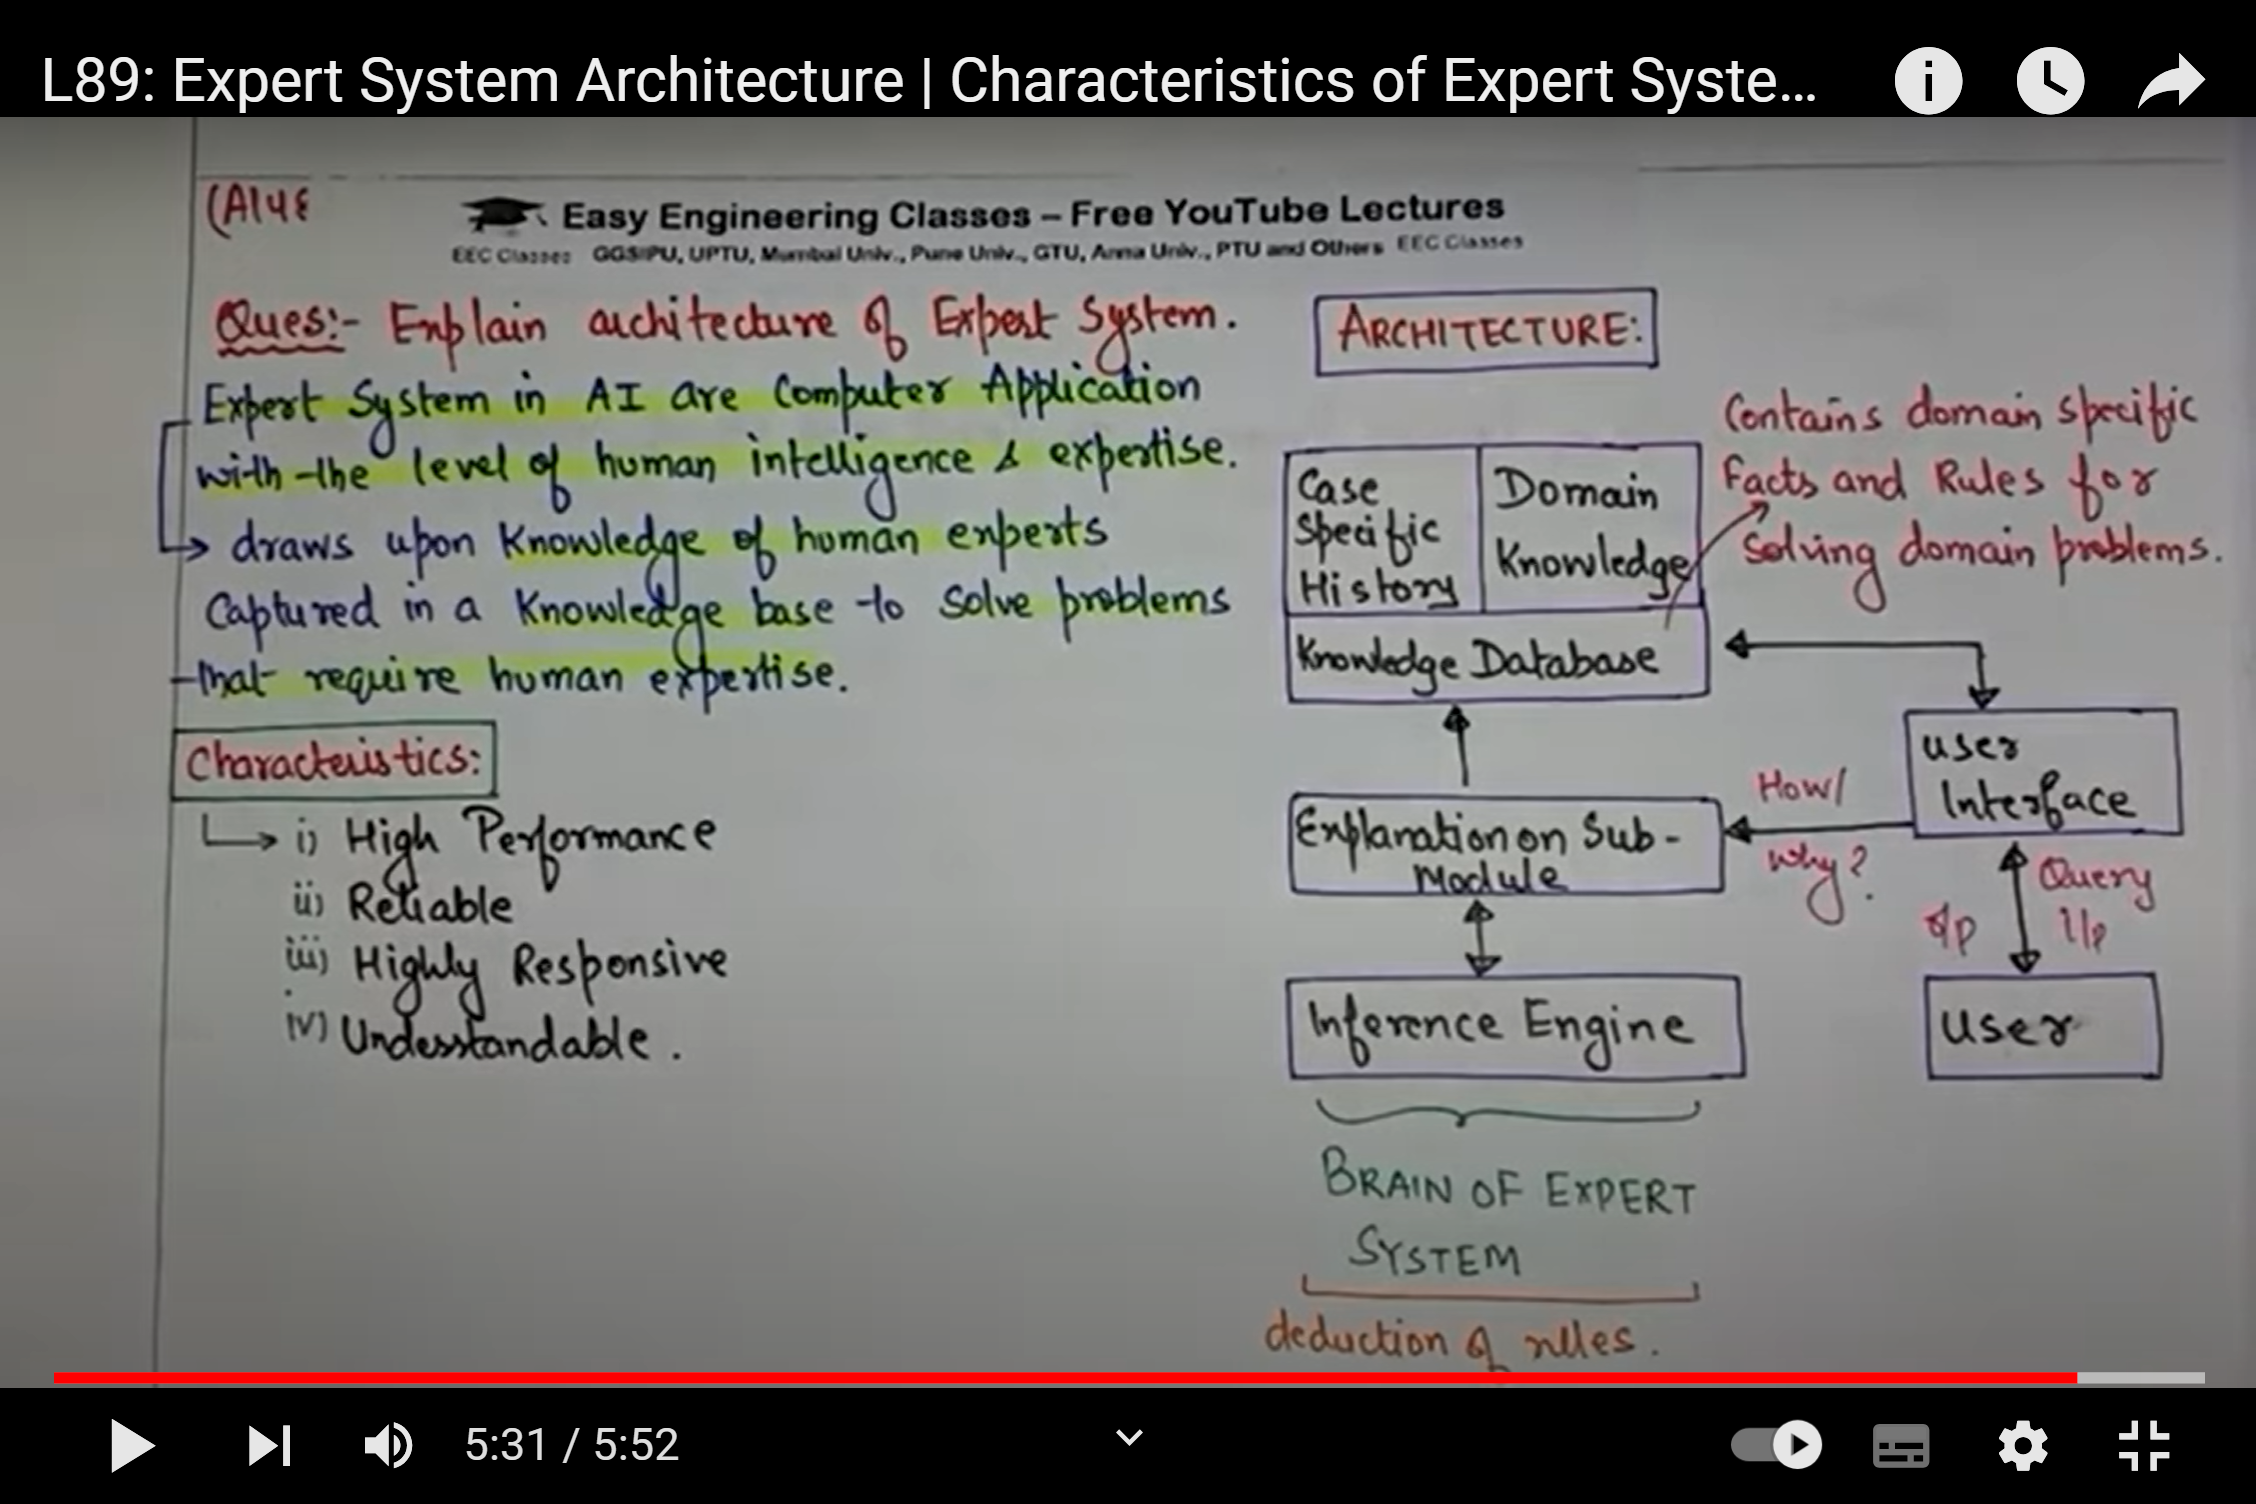 L89: Expert System Architecture | Characteristics of Expert Syste...
(A148
Easy Engineering Classes – Free YouTube Lectures
EEC Classes GGSIPU, UPTU, Mumbai Univ., Pune Univ., GTU, Anna Univ., PTU and Others EEC Classes
Ques:- Explain architecture of Expert System.
Expert System in AI are Computer Application
with the level of human intelligence & expertise.
→ draws upon Knowledge of human experts
Captured in a Knowledge base to solve problems
that require human expertise.
Characteristics:
i) High Performance
ii) Reliable
iii) Highly Responsive
iv) Understandable.
ARCHITECTURE:
Contains domain specific
Facts and Rules for
Solving domain problems.
Case
Specific
History
Domain
Knowledge
Knowledge Database
User
Interface
How/
Why?
Explanation on Sub-
Module
Query
i/p
o/p
Inference Engine
User
BRAIN OF EXPERT
SYSTEM
deduction of rules.
5:31 / 5:52